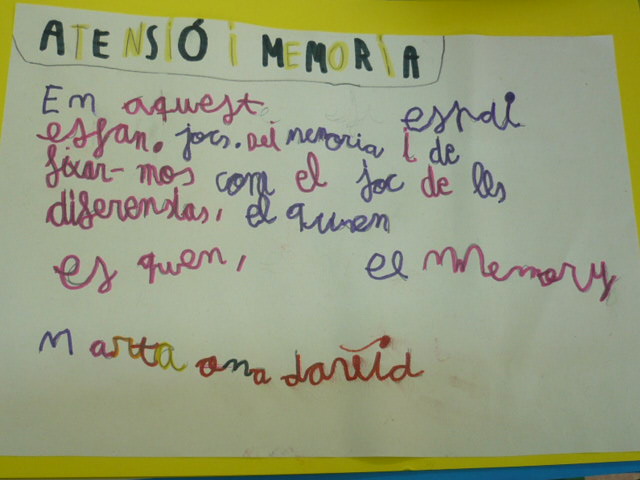 ATENSIÓ i MEMORiA
Em aquest espai
esfan. jocs. Del memoria i de
fixar-mos com el joc de les
diferensias, el quien
es quen, el Memory
Marta ona david